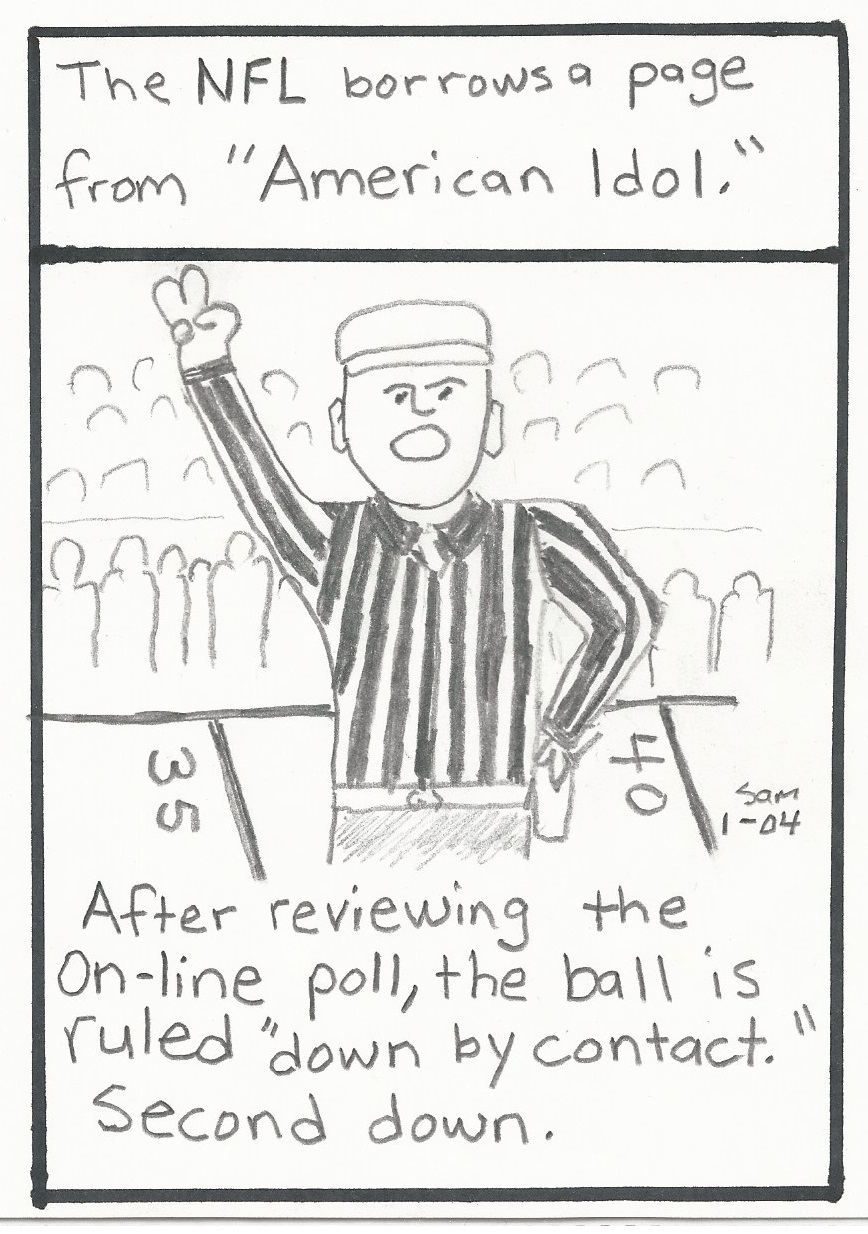 The NFL borrows a page
from "American Idol."
35
40
Sam
1-04
After reviewing the
On-line poll, the ball is
ruled "down by contact."
Second down.